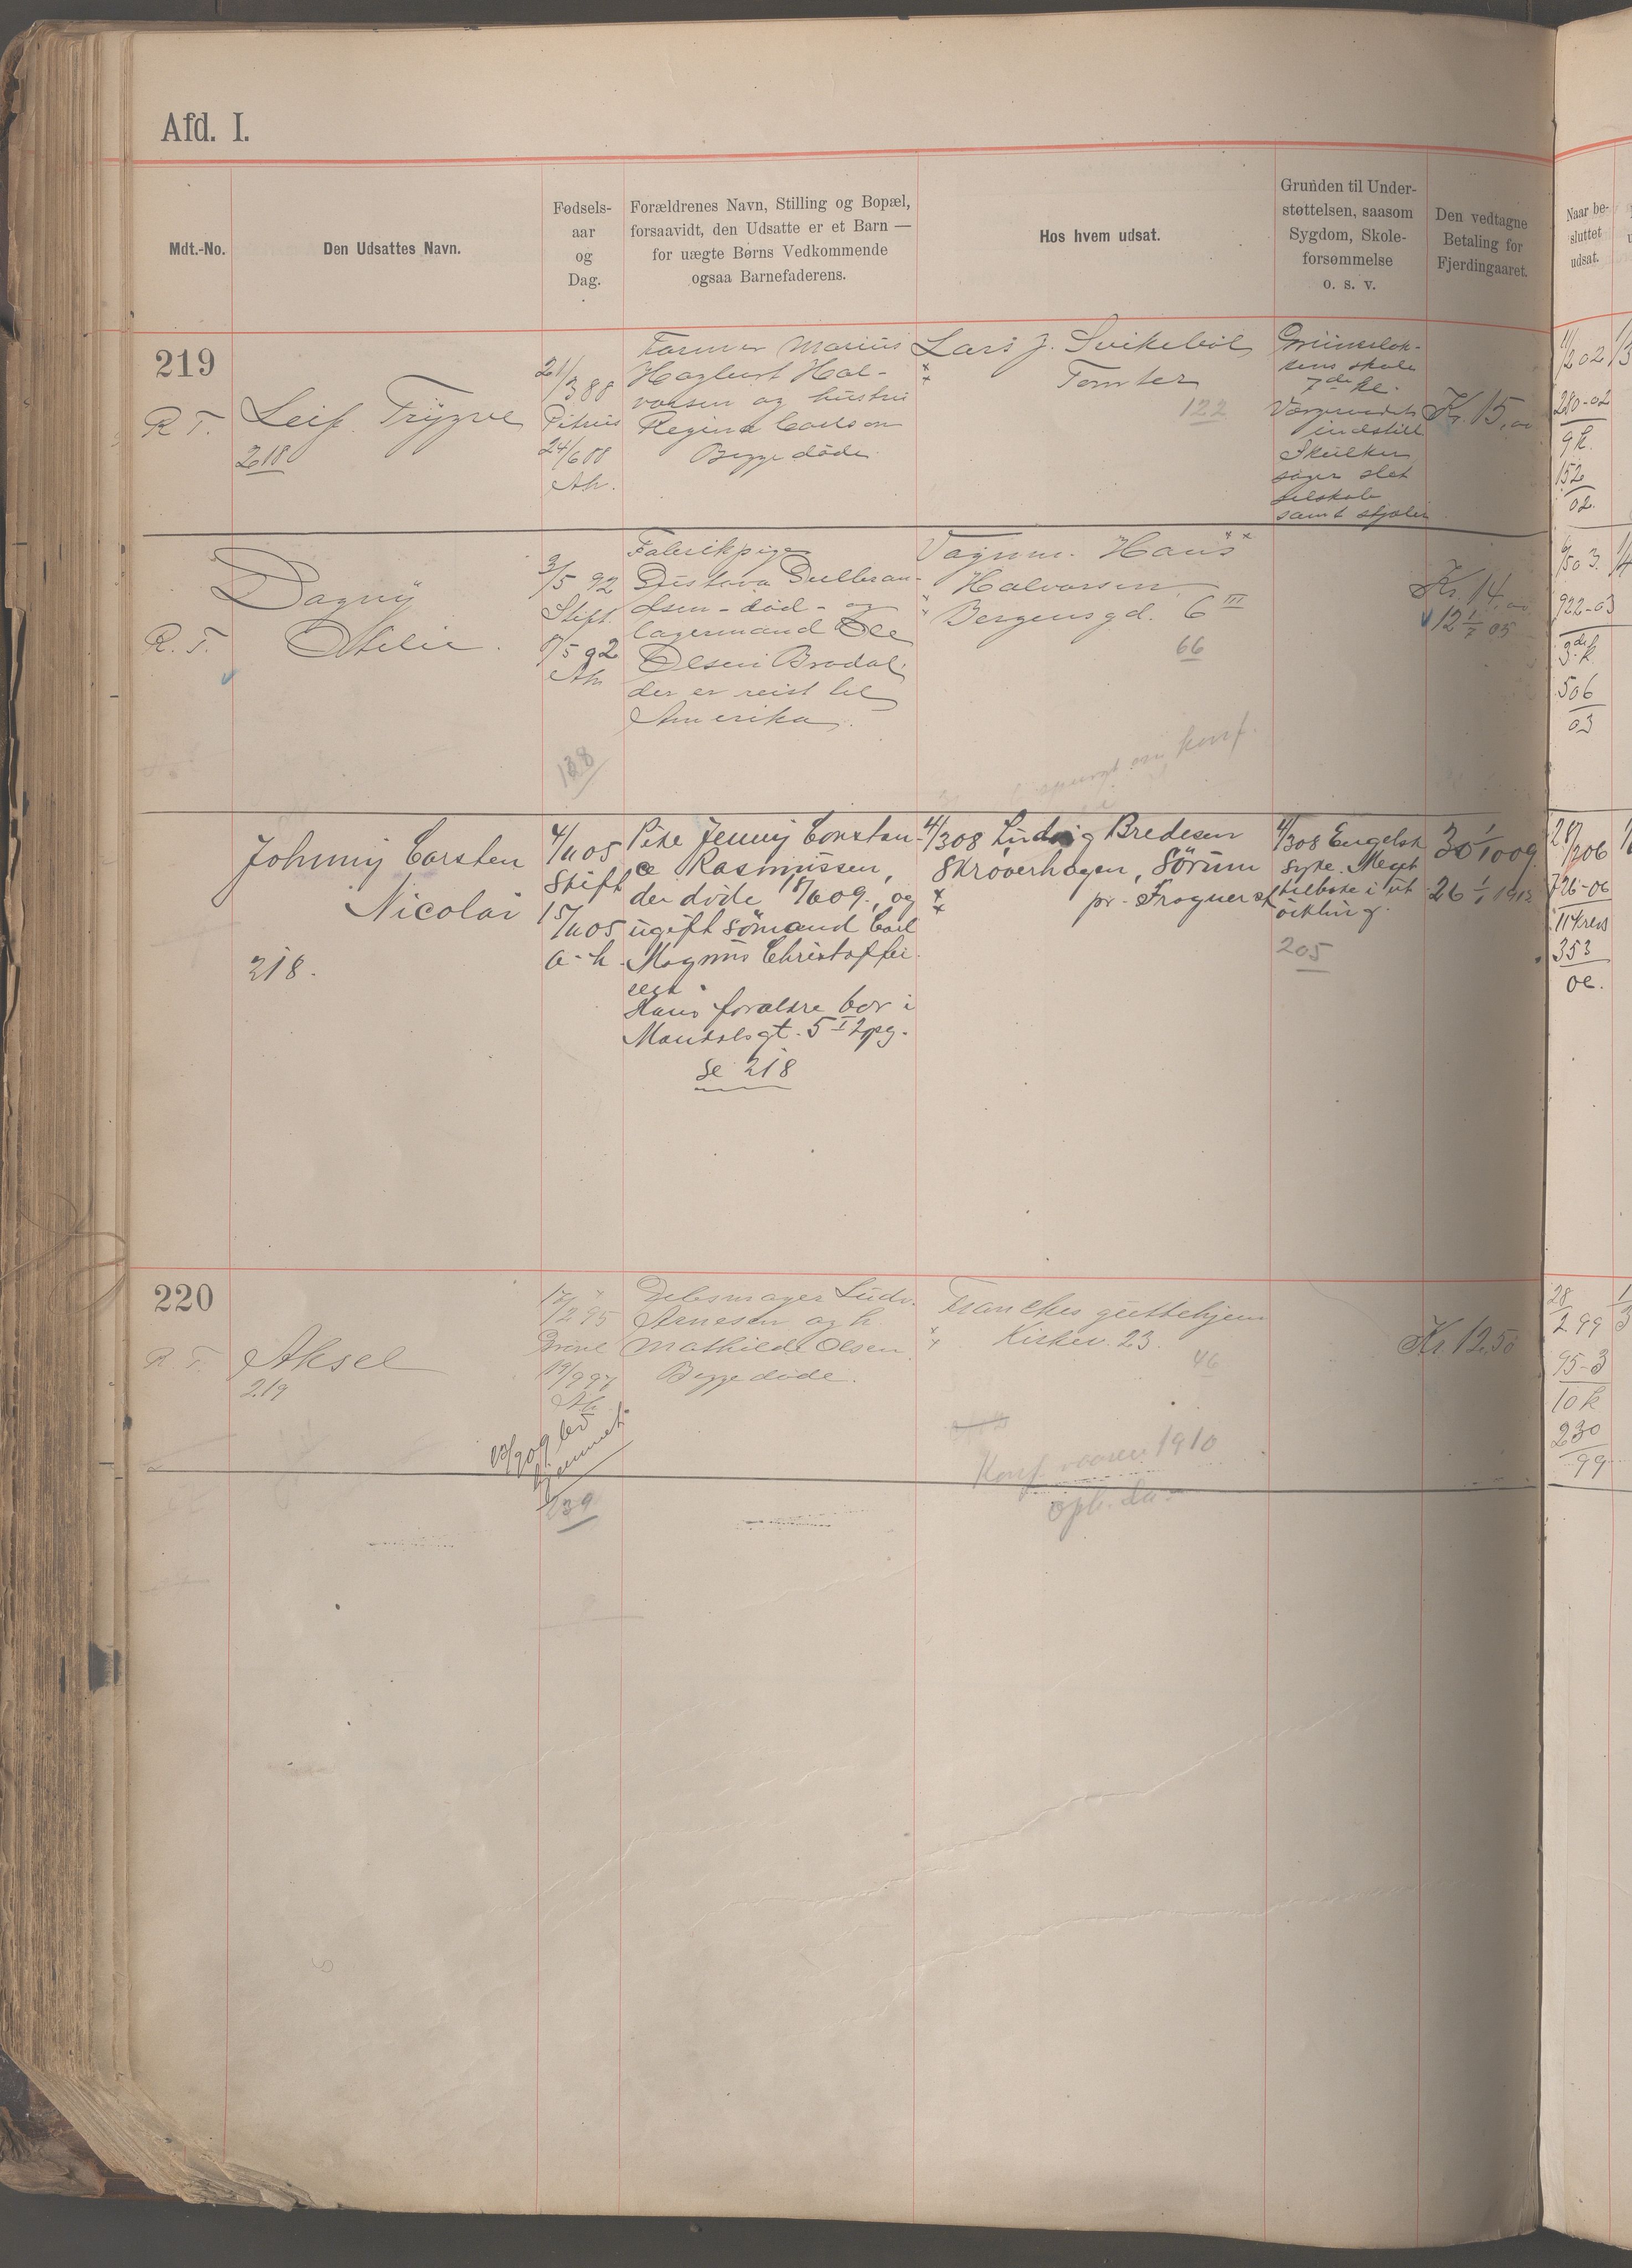 Afd. I.
Mdt.-No.
Den Udsattes Navn.
Fødsels-
aar
og
Dag.
Forældrenes Navn, Stilling og Bopæl,
forsaavidt, den Udsatte er et Barn —
for uægte Børns Vedkommende
ogsaa Barnefaderens.
Hos hvem udsat.
Grunden til Under-
støttelsen, saasom
Sygdom, Skole-
forsømmelse
o. s. v.
Den vedtagne
Betaling for
Fjerdingaaret.
Naar be-
sluttet
udsat.
219
R T.
Leif. Trÿgve
218
21/3 88
Petrus
24/6 88
Ah.
Former Marius
Hagbart Hal-
vorsen og hustru
Regina Carlson
Begge døde.
Lars J. Svikebøl
Tomter
122
Grünerløk-
kens skole
7de kl.
Værgeraadets
indstill
Skulker
søger slet
selskab
samt stjæler
Kr. 15,00
11/2 02
280-02
9 k.
152
02
R. T.
Dagnÿ
Otilie.
3/5 92
Stift.
9/5 92
Ah
128
Fabrikpige
Gustava Gulbran-
dsen - død - og
lagermand Ole
Olsen Brodal,
der er reist til
Amerika.
Vognm. Hans
Halvorsen
Bergensgd. 6 III
66
spurgt om konf.
Kr. 14,00
12 1/7 05
6/5 03.
922-03
3de k.
506
03
Johnny Carsten
Nicolai
218.
4/11 05
Stift
15/11 05
a-h.
Pike Jenny Constan-
ce Rasmussen,
der døde 18/6 09., og
ugift sömand Carl
Magnus Christoffer
sen.
Hans forældre bor i
Mandalsgt. 5 I opg.
se 218
4/3 08 Ludvig Bredesen
Skrøverhagen, Sörum
pr. Frogner st
4/3 08 Engelsk
syke. Meget
tilbake i ut
vikling.
205
30 1/10 09
26 1/1 1912
28/7 06
726-06
11 kreds
353
06.
220
R T.
Aksel
219
17/2 95
19/9 97
Ah
139
Ludv.
Arnesen og h.
Mathilde Olsen.
Begge døde.
Franckes guttehjem
Kirkev. 23.
46
Konf. vaaren 1910
oph. da
Kr. 12,50
28/2 99
95-3
10 k
230
99